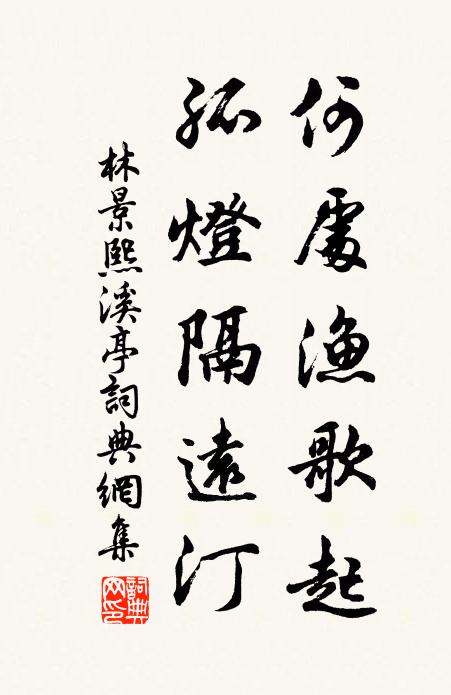 何處漁歌起
孤燈隔遠汀
林景熙溪亭詞典網集
詞典網印